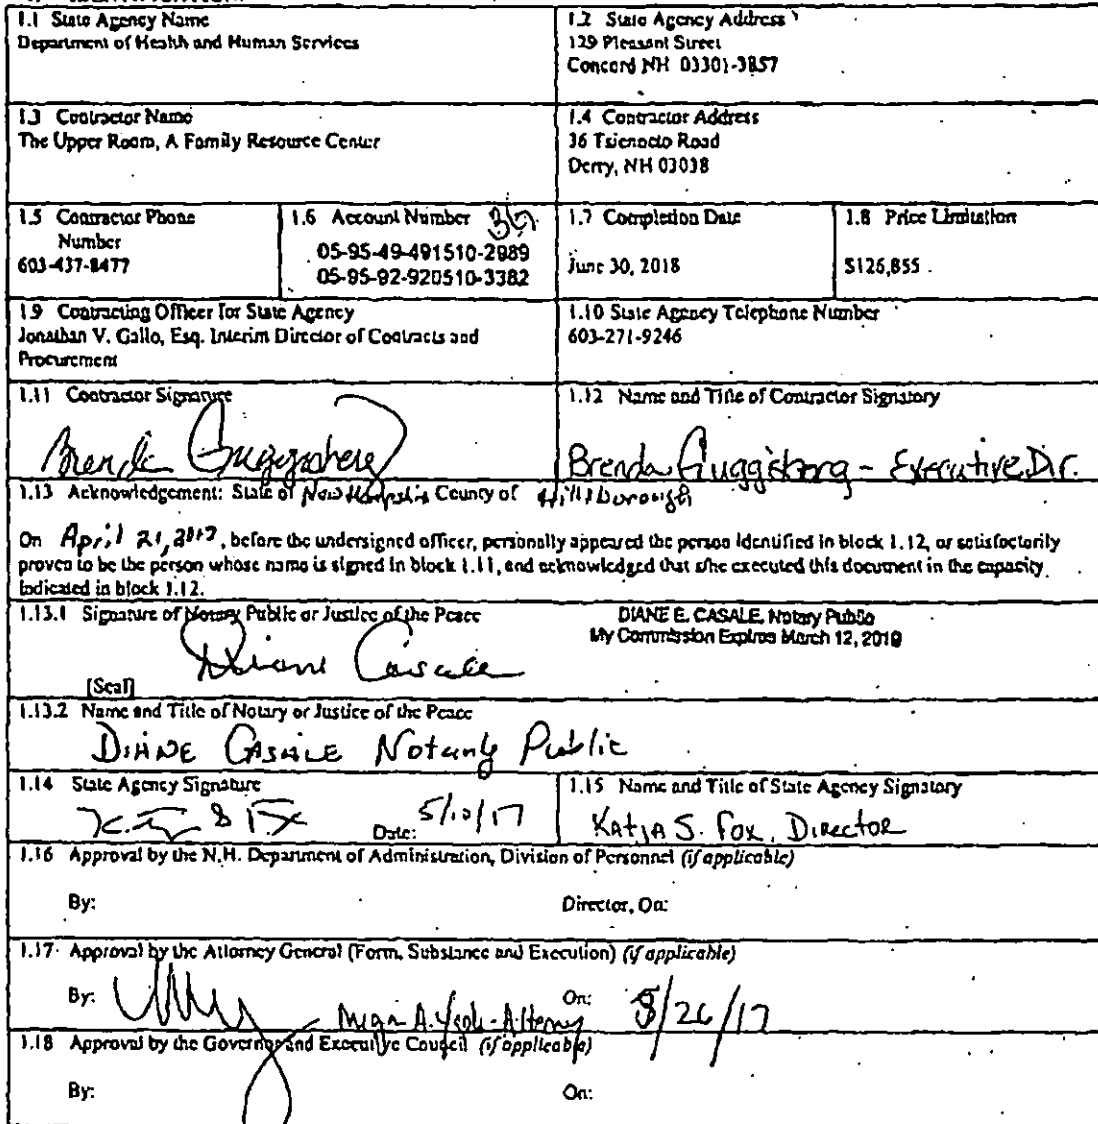 1.1 State Agency Name
Department of Health and Human Services
1.2 State Agency Address
129 Pleasant Street
Concord NH 03301-3857
1.3 Contractor Name
The Upper Room, A Family Resource Center
1.4 Contractor Address
36 Tsienneto Road
Derry, NH 03038
1.5 Contractor Phone
Number
603-437-8477
1.6 Account Number
05-95-49-491510-2989
05-95-92-920510-3382
1.7 Completion Date
June 30, 2018
1.8 Price Limitation
$126,855
1.9 Contracting Officer for State Agency
Jonathan V. Gallo, Esq. Interim Director of Contracts and
Procurement
1.10 State Agency Telephone Number
603-271-9246
1.11 Contractor Signature
Brenda Guggisberg
1.12 Name and Title of Contractor Signatory
Brenda Guggisberg - Executive Dir.
1.13 Acknowledgement: State of New Hampshire County of Hillsborough
On April 21, 2017, before the undersigned officer, personally appeared the person identified in block 1.12, or satisfactorily
proven to be the person whose name is signed in block 1.11, and acknowledged that s/he executed this document in the capacity
indicated in block 1.12.
1.13.1 Signature of Notary Public or Justice of the Peace
DIANE E. CASALE, Notary Public
My Commission Expires March 12, 2019
Diane Casale
[Seal]
1.13.2 Name and Title of Notary or Justice of the Peace
DIANE CASALE Notary Public
1.14 State Agency Signature
Date: 5/10/17
1.15 Name and Title of State Agency Signatory
Katja S. Fox, Director
1.16 Approval by the N.H. Department of Administration, Division of Personnel (if applicable)
By: Director, On:
1.17 Approval by the Attorney General (Form, Substance and Execution) (if applicable)
By: Megan A. Yaple - Attorney On: 5/26/17
1.18 Approval by the Governor and Executive Council (if applicable)
By: On: